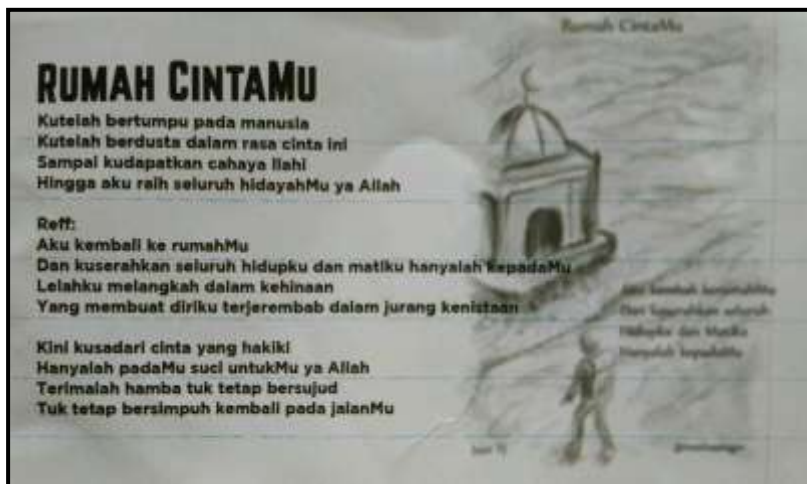 Rumah CintaMu
RUMAH CINTAMU
Kutelah bertumpu pada manusia
Kutelah berdusta dalam rasa cinta ini
Sampai kudapatkan cahaya Ilahi
Hingga aku raih seluruh hidayahMu ya Allah
Reff:
Aku kembali ke rumahMu
Dan kuserahkan seluruh hidupku dan matiku hanyalah kepadaMu
Lelahku melangkah dalam kehinaan
Yang membuat diriku terjerembab dalam jurang kenistaan
Kini kusadari cinta yang hakiki
Hanyalah padaMu suci untukMu ya Allah
Terimalah hamba tuk tetap bersujud
Tuk tetap bersimpuh kembali pada jalanMu
Aku kembali kerumahMu
Dan kuserahkan seluruh
Hidupku dan Matiku
Hanyalah kepadaMu